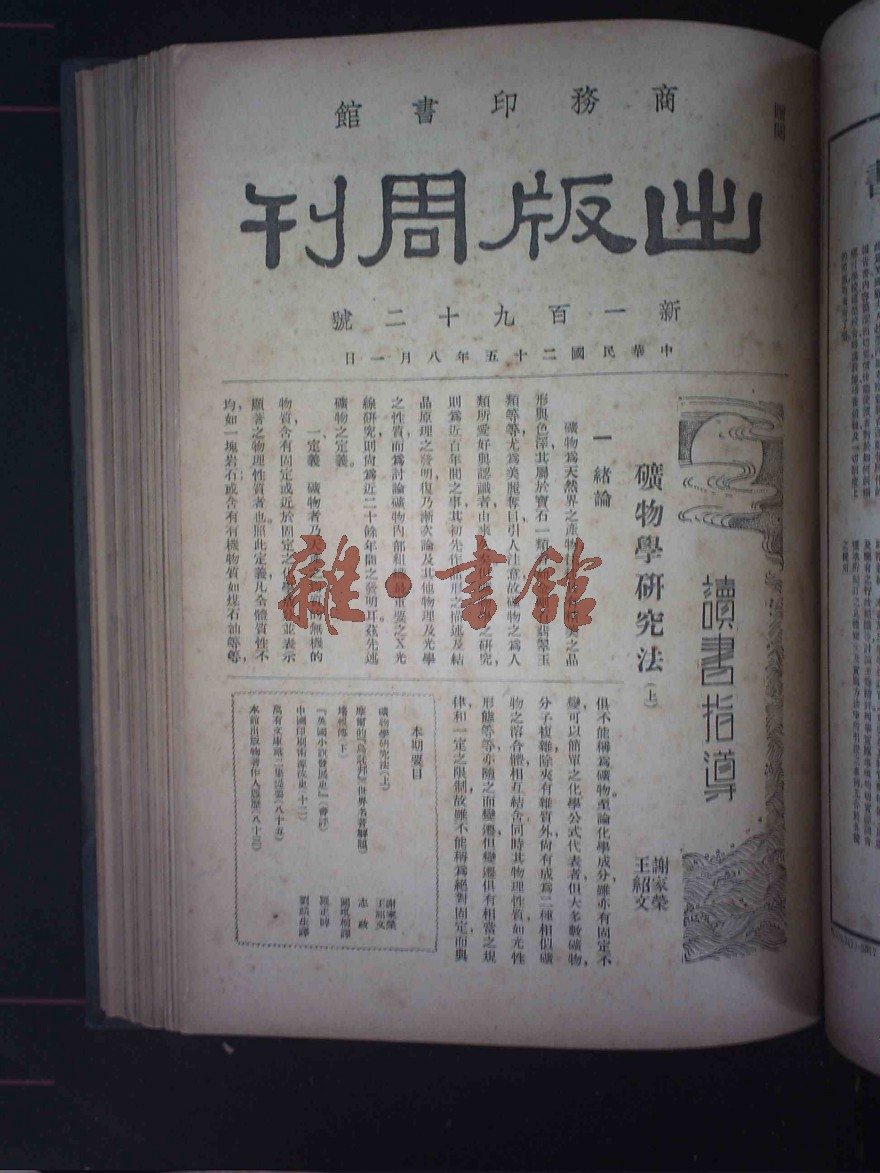 商務印書館
出版周刊
新一百九十二號
中華民國二十五年八月一日
讀書指導
礦物學研究法(上)
謝家榮
王紹文
一 緒論
礦物爲天然界之產物
形與色澤其屬於寶石一類
翡翠玉
類等等尤爲美麗奪目引人注意故礦物之爲人
類所愛好與認識者由來
之研究
則爲近百年間之事其初先作晶形之描述及結
晶原理之發明復乃漸次論及其他物理及光學
之性質而爲討論礦物內部組
最重要之X光
線研究則尚爲近二十餘年間之發明耳茲先述
礦物之定義。
一、定義 礦物者乃天
無機的
物質含有固定或近於固定之化學
並表示
顯著之物理性質者也。照此定義凡全體質性不
均如一塊岩石或含有有機物質如煤石油等等,
俱不能稱爲礦物。至論化學成分,雖亦有固定不
變可以簡單之化學公式代表者但大多數礦物,
分子複雜除夾有雜質外尚有成爲二種相似礦
物之溶合體相互結合同時其物理性質如光性
形態等等亦隨之而變遷但變遷俱有相當之規
律和一定之限制故雖不能稱爲絕對固定而與
本期要目
礦物學研究法(上)
謝家榮
王紹文
摩爾的『烏託邦』(世界名著解題)
志政
『英國小說發展史』(書評)
中國印刷術源流史(十二)
劉麟生譯
萬有文庫第二集提要(八十五)
本館出版物著作人履歷(八十三)
雜·書館